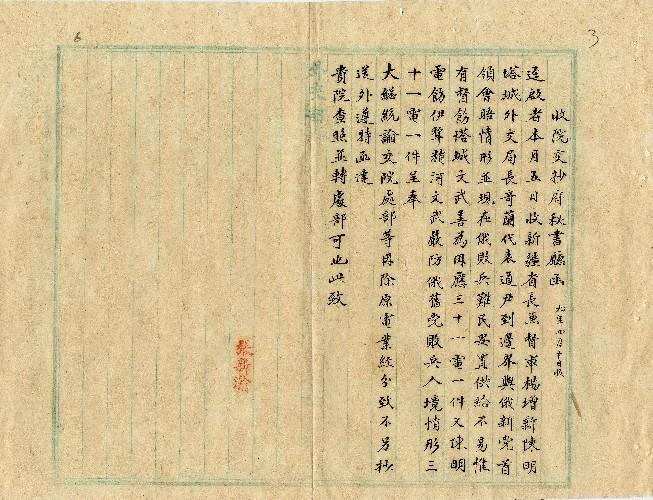 收院交抄府秘書廳函 九年四月十日收
逕啟者本月五日收新疆省長兼督軍楊增新陳明
塔城外交局長哥蘭代表道尹到邊界與俄新黨首
領會晤情形並現在俄敗兵難民安置供給不易惟
有督飭塔城文武善為因應三十一電一件又陳明
電飭伊犂額河文武嚴防俄舊党敗兵入境情形三
十一電一件呈奉
大總統諭交院處部等因除原電業經分致不另抄
送外遵特函達
貴院查照並轉處部可也此致
張新
3
6